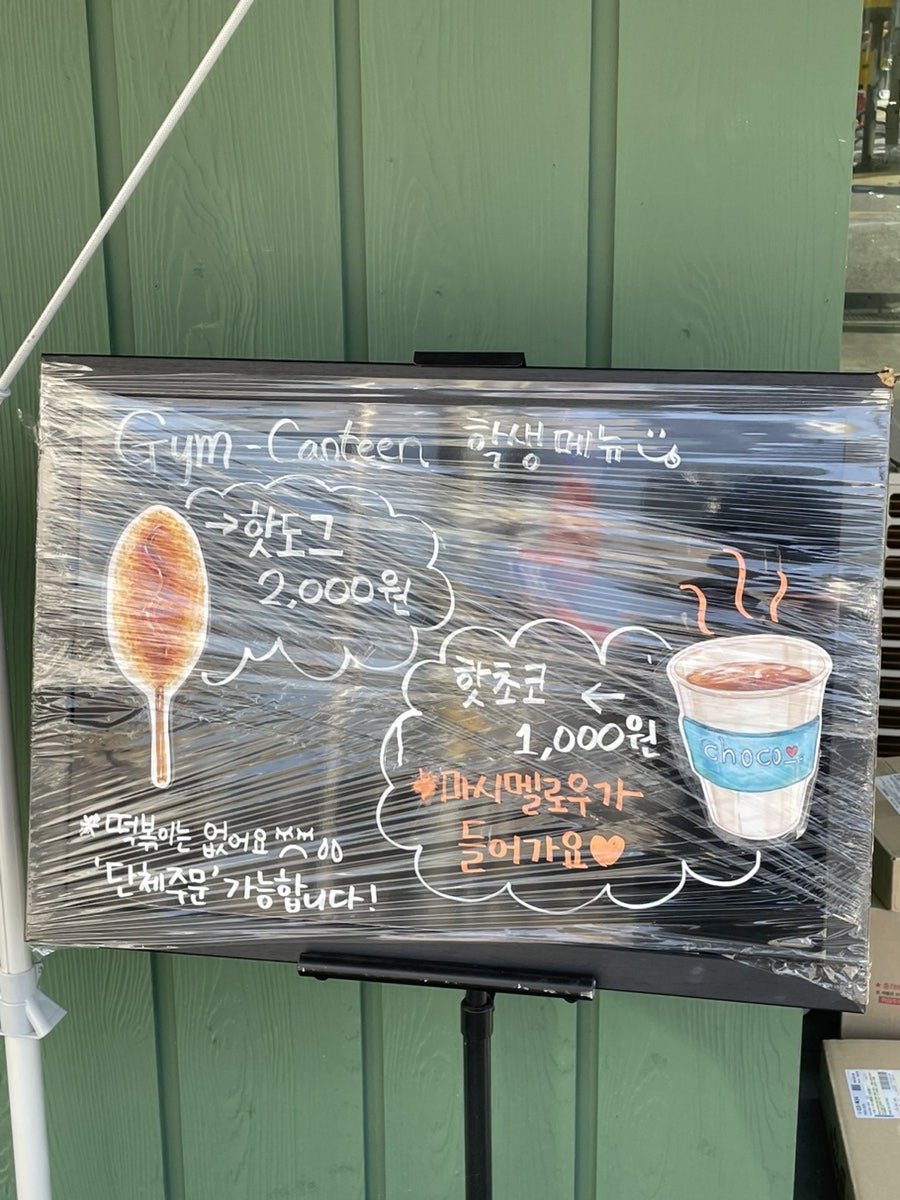 Gym-Canteen 학생메뉴
→핫도그
2,000원
핫초코 ←
1,000원
*마시멜로우가
들어가요♥
choco♥
*떡볶이는 없어요ㅠㅠ
'단체주문' 가능합니다!